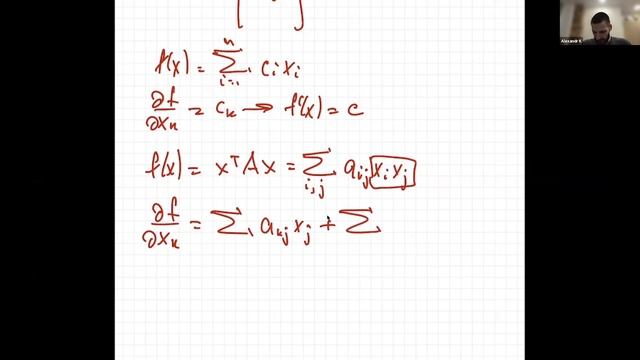 Alexandr K
f(x) = \sum_{i=1}^{n} c_i x_i
\frac{\partial f}{\partial x_k} = c_k → f'(x) = c
f(x) = x^T A x = \sum_{i,j} a_{ij} x_i x_j
\frac{\partial f}{\partial x_k} = \sum a_{kj} x_j + \sum